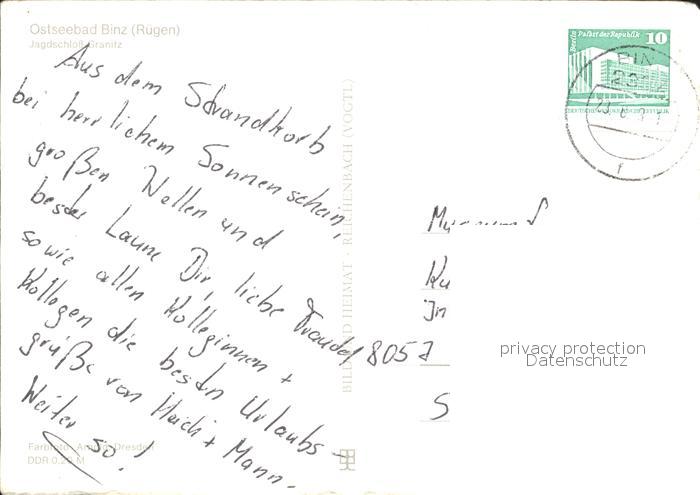 Ostseebad Binz (Rügen)
Jagdschloß Granitz
Aus dem Strandkorb
bei herrlichem Sonnenschein,
großen Wellen und
bester Laune Dir, liebe Traudel
sowie allen Kolleginnen +
Kollegen die besten Urlaubs-
grüße von Heidi + Mann.
Weiter so!
Farbfoto: Dresden
DDR 0,20 M
BILD UND HEIMAT · REICHENBACH (VOGTL)
Berlin Palast der Republik 10
DEUTSCHE DEMOKRATISCHE REPUBLIK
BIN
23
f
8057
S
privacy protection
Datenschutz